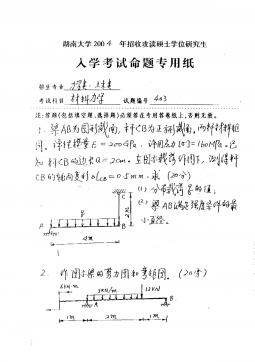 湖南大学 2004 年招收攻读硕士学位研究生
入学考试命题专用纸
招生专业 力学类、土木类
考试科目 材料力学 试题编号 403
注:答题(包括填空题、选择题)必须答在专用答卷纸上,否则无效。
1. 梁AB为圆形截面,杆CB为正方形截面,两部材料相
同,弹性模量E=200GPa,许用应力[σ]=160MPa。已
知杆CB的边长a=2cm。在图示载荷作用下,测得杆
CB的轴向变形Δl_CB=0.5mm。求(20分)
(1) 分布载荷q的值;
(2) 梁AB满足强度条件的最
小直径。
C
A
B
4m
2. 作图示梁的剪力图和弯矩图。(20分)
6kN·m
12kN
A
B
1m
2m
1m